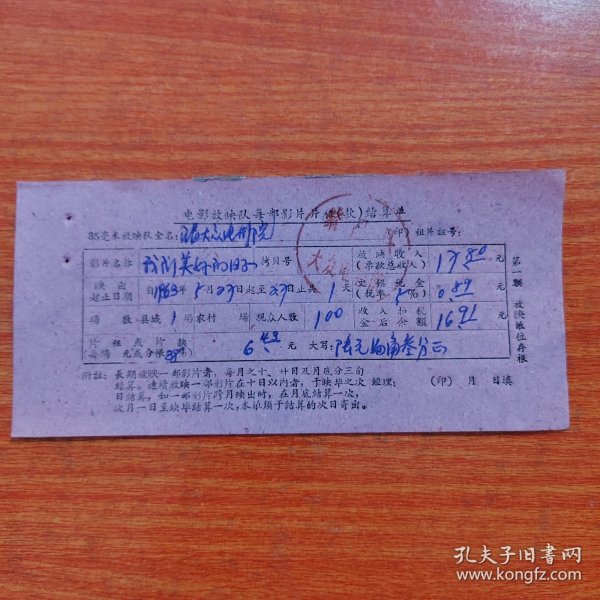 电影放映队每部影片片租(款)结算单
35毫米放映队全名: 大众电影院 (印) 租片证号:
影片名称 我们美好的日子 拷贝号 放映收入(票款总收入) 17.80 元
映出起止日期 自1963年5月27日起至27日止共1天 交娱现金(税率5%) 0.89 元
场数 县城1场农村 场 观众人数 100 收入扣税金后余额 16.91 元
片租或片款(每场 元或分帐38%) 6.43 元 大写: 陆元肆角叁分正
附注:长期放映一部影片者,每月之十、廿日及月底分三旬
结算。连续放映一部影片在十日以内者,于映毕之次 经理: (印) 月 日填
日结算,如一部影片跨月映出时,在月底结算一次,
次月一日至映毕结算一次,本单须于结算的次日寄出。
第一联 放映单位存根
大众
孔夫子旧书网
www.kongfz.com